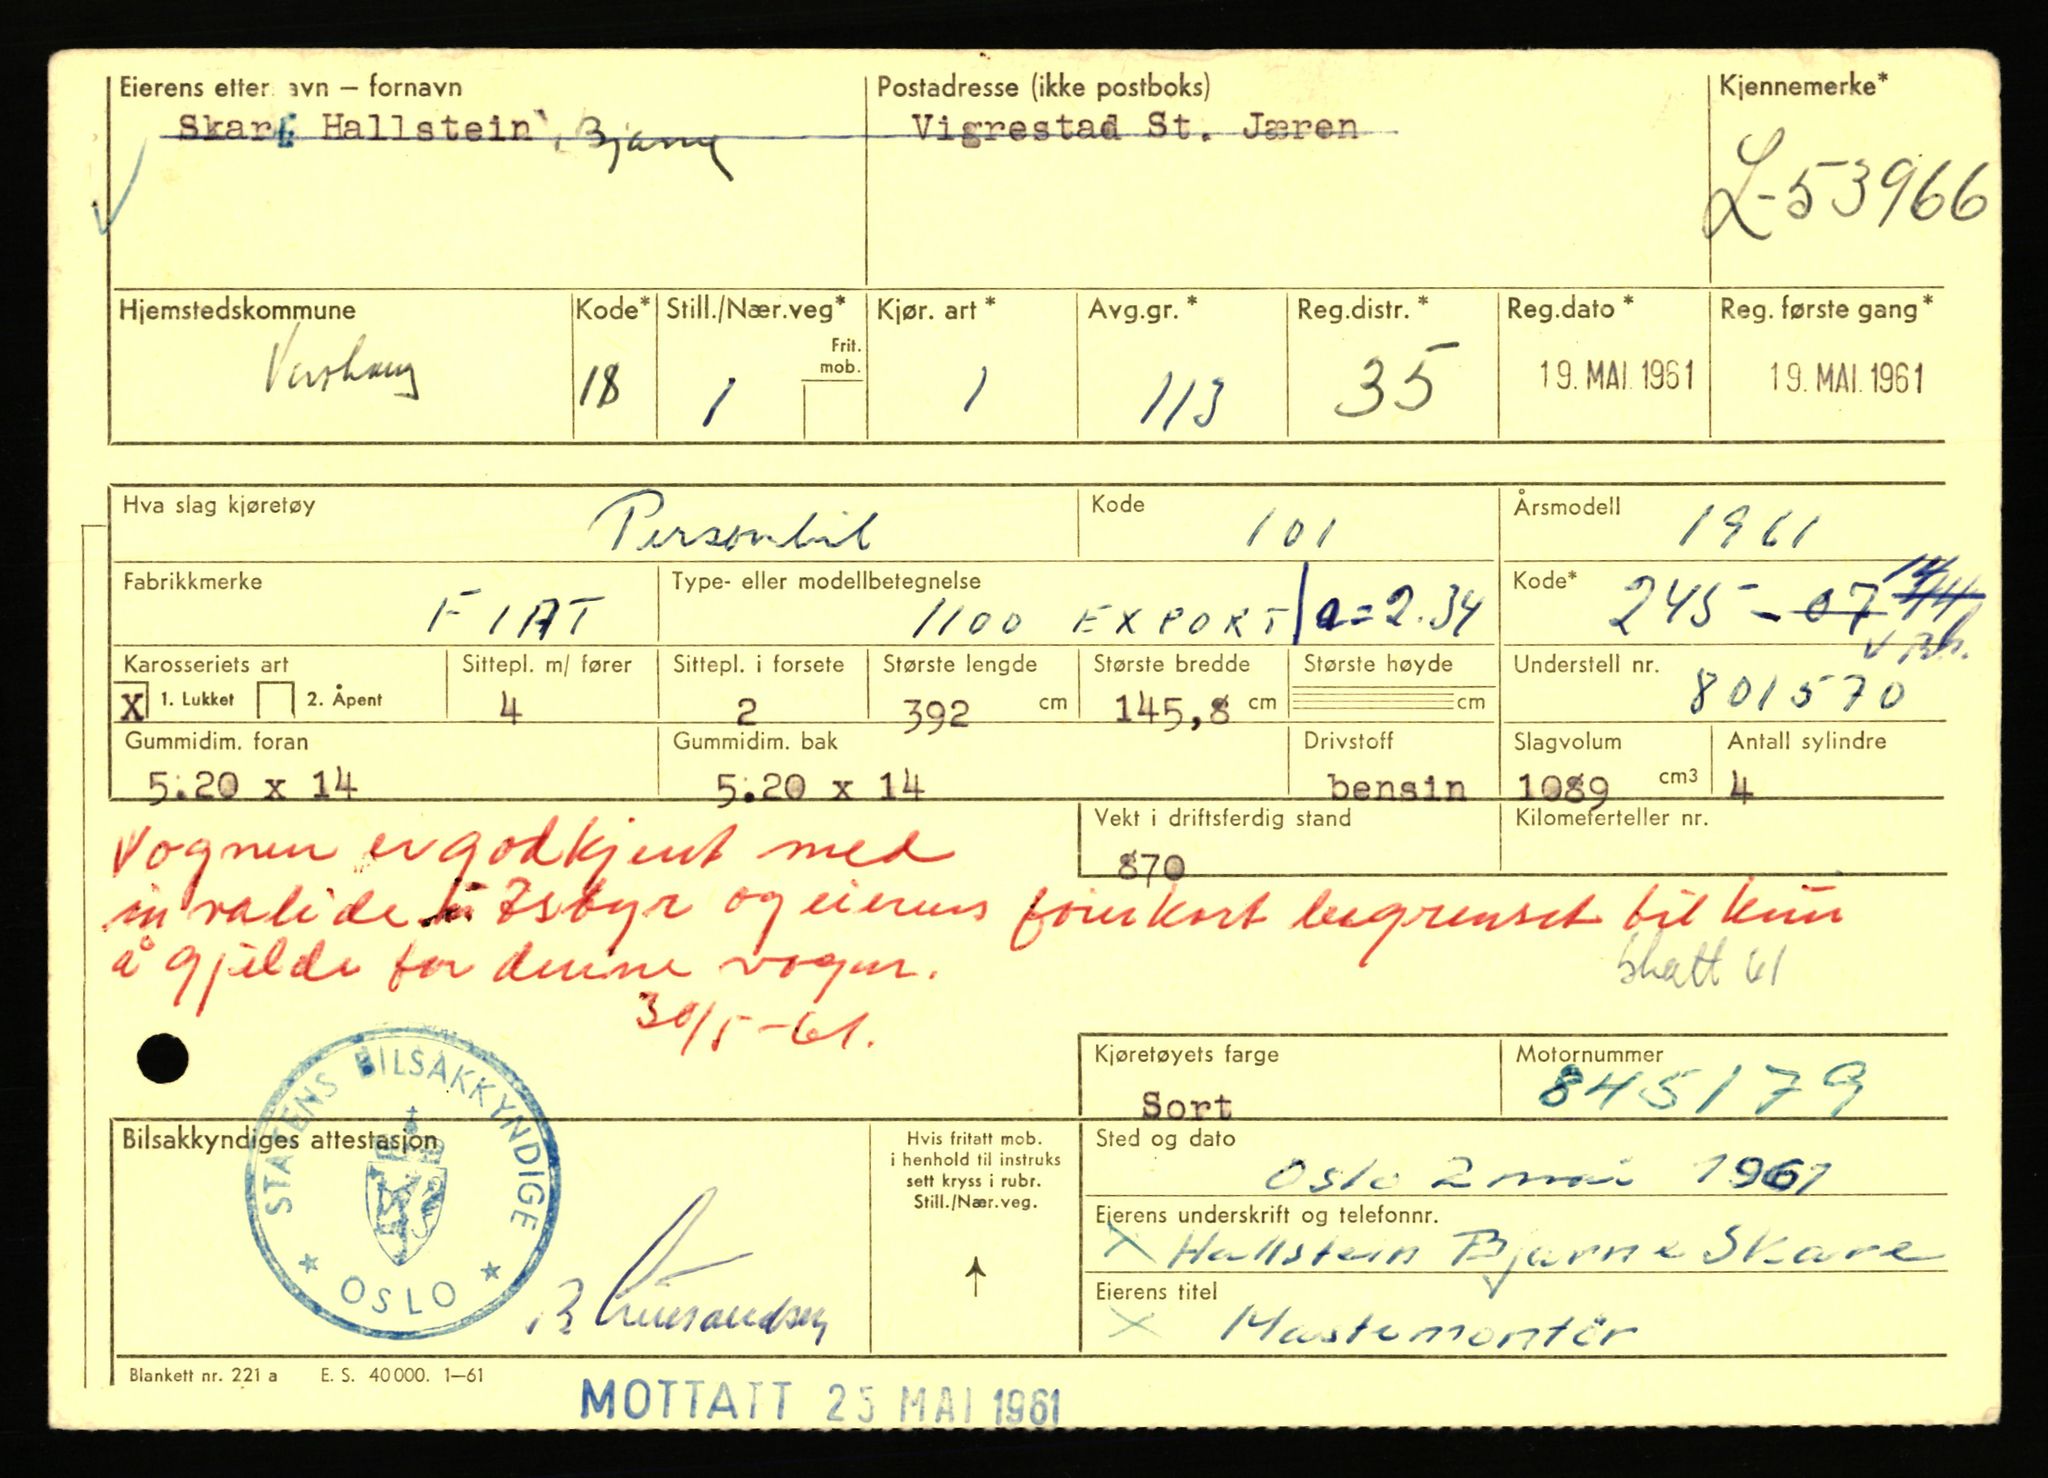 Eierens etternavn – fornavn
Postadresse (ikke postboks)
Kjennemerke*
Skare Hallstein, Bjarne
Vigrestad St. Jæren
L-53966
Hjemstedskommune
Kode*
Still./Nær.veg*
Kjør. art*
Avg.gr.*
Reg.distr.*
Reg.dato*
Reg. første gang*
Frit. mob.
Varhaug
18
1
1
113
35
19. MAI. 1961
19. MAI. 1961
Hva slag kjøretøy
Personbil
Kode
101
Årsmodell
1961
Fabrikkmerke
FIAT
Type- eller modellbetegnelse
1100 EXPORT/a=2.34
Kode*
245-07
Karosseriets art
X 1. Lukket 2. Åpent
Sittepl. m/ fører
4
Sittepl. i forsete
2
Største lengde
392 cm
Største bredde
145,8 cm
Største høyde
cm
Understell nr.
801570
Gummidim. foran
5.20 x 14
Gummidim. bak
5.20 x 14
Drivstoff
bensin
Slagvolum
1089 cm3
Antall sylindre
4
Vekt i driftsferdig stand
870
Kilometerteller nr.
Vognen er godkjent med
invalide utstyr og eierens førerkort begrenset til kun
å gjelde for denne vogn.
skatt 61
30/5-61.
Kjøretøyets farge
Sort
Motornummer
845179
Bilsakkyndiges attestasjon
STATENS BILSAKKYNDIGE
* OSLO *
Hvis fritatt mob.
i henhold til instruks
sett kryss i rubr.
Still./Nær.veg.
Sted og dato
Oslo 2 mai 1961
Eierens underskrift og telefonnr.
X Hallstein Bjarne Skare
Eierens titel
X Mastemontör
Blankett nr. 221 a E. S. 40 000. 1–61
MOTTATT 25 MAI 1961